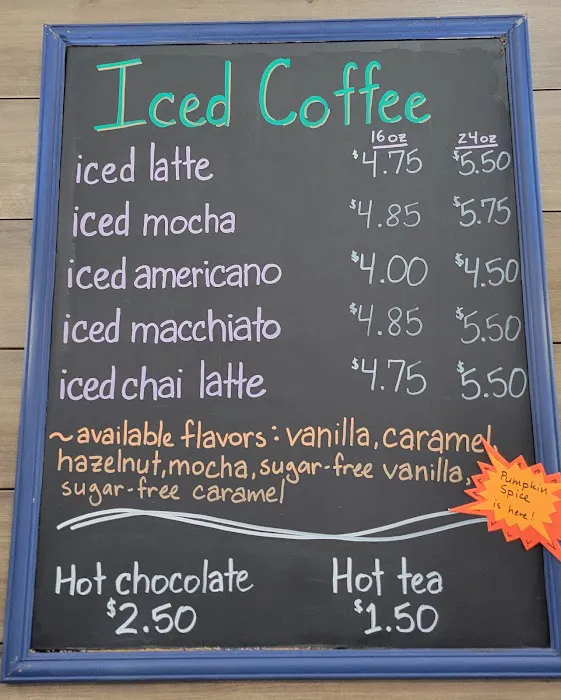 Iced Coffee
16oz 24oz
iced latte $4.75 $5.50
iced mocha $4.85 $5.75
iced americano $4.00 $4.50
iced macchiato $4.85 $5.50
iced chai latte $4.75 $5.50
~available flavors: vanilla, caramel,
hazelnut, mocha, sugar-free vanilla,
sugar-free caramel
Pumpkin
Spice
is here!
Hot chocolate Hot tea
$2.50 $1.50